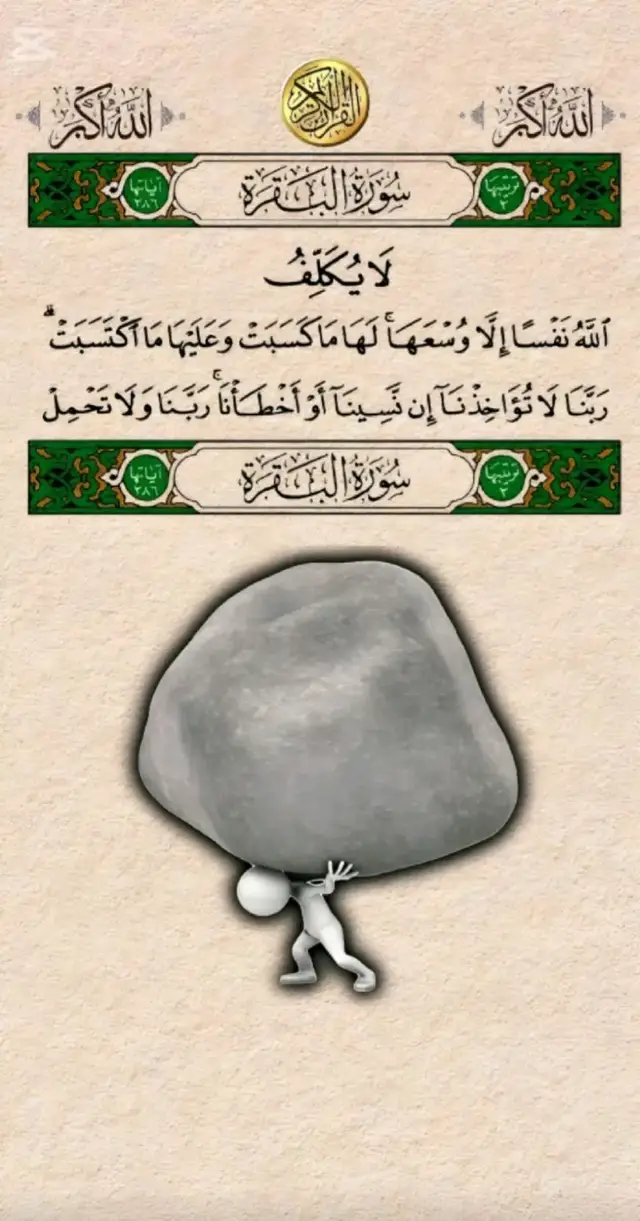 الله أكبر
القرآن الكريم
الله أكبر
ترتيبها ٢
سُورَةُ البَقَرَة
آياتها ٢٨٦
لَا يُكَلِّفُ
ٱللَّهُ نَفْسًا إِلَّا وُسْعَهَاۚ لَهَا مَا كَسَبَتْ وَعَلَيْهَا مَا ٱكْتَسَبَتْۗ
رَبَّنَا لَا تُؤَاخِذْنَآ إِن نَّسِينَآ أَوْ أَخْطَأْنَاۚ رَبَّنَا وَلَا تَحْمِلْ
ترتيبها ٢
سُورَةُ البَقَرَة
آياتها ٢٨٦